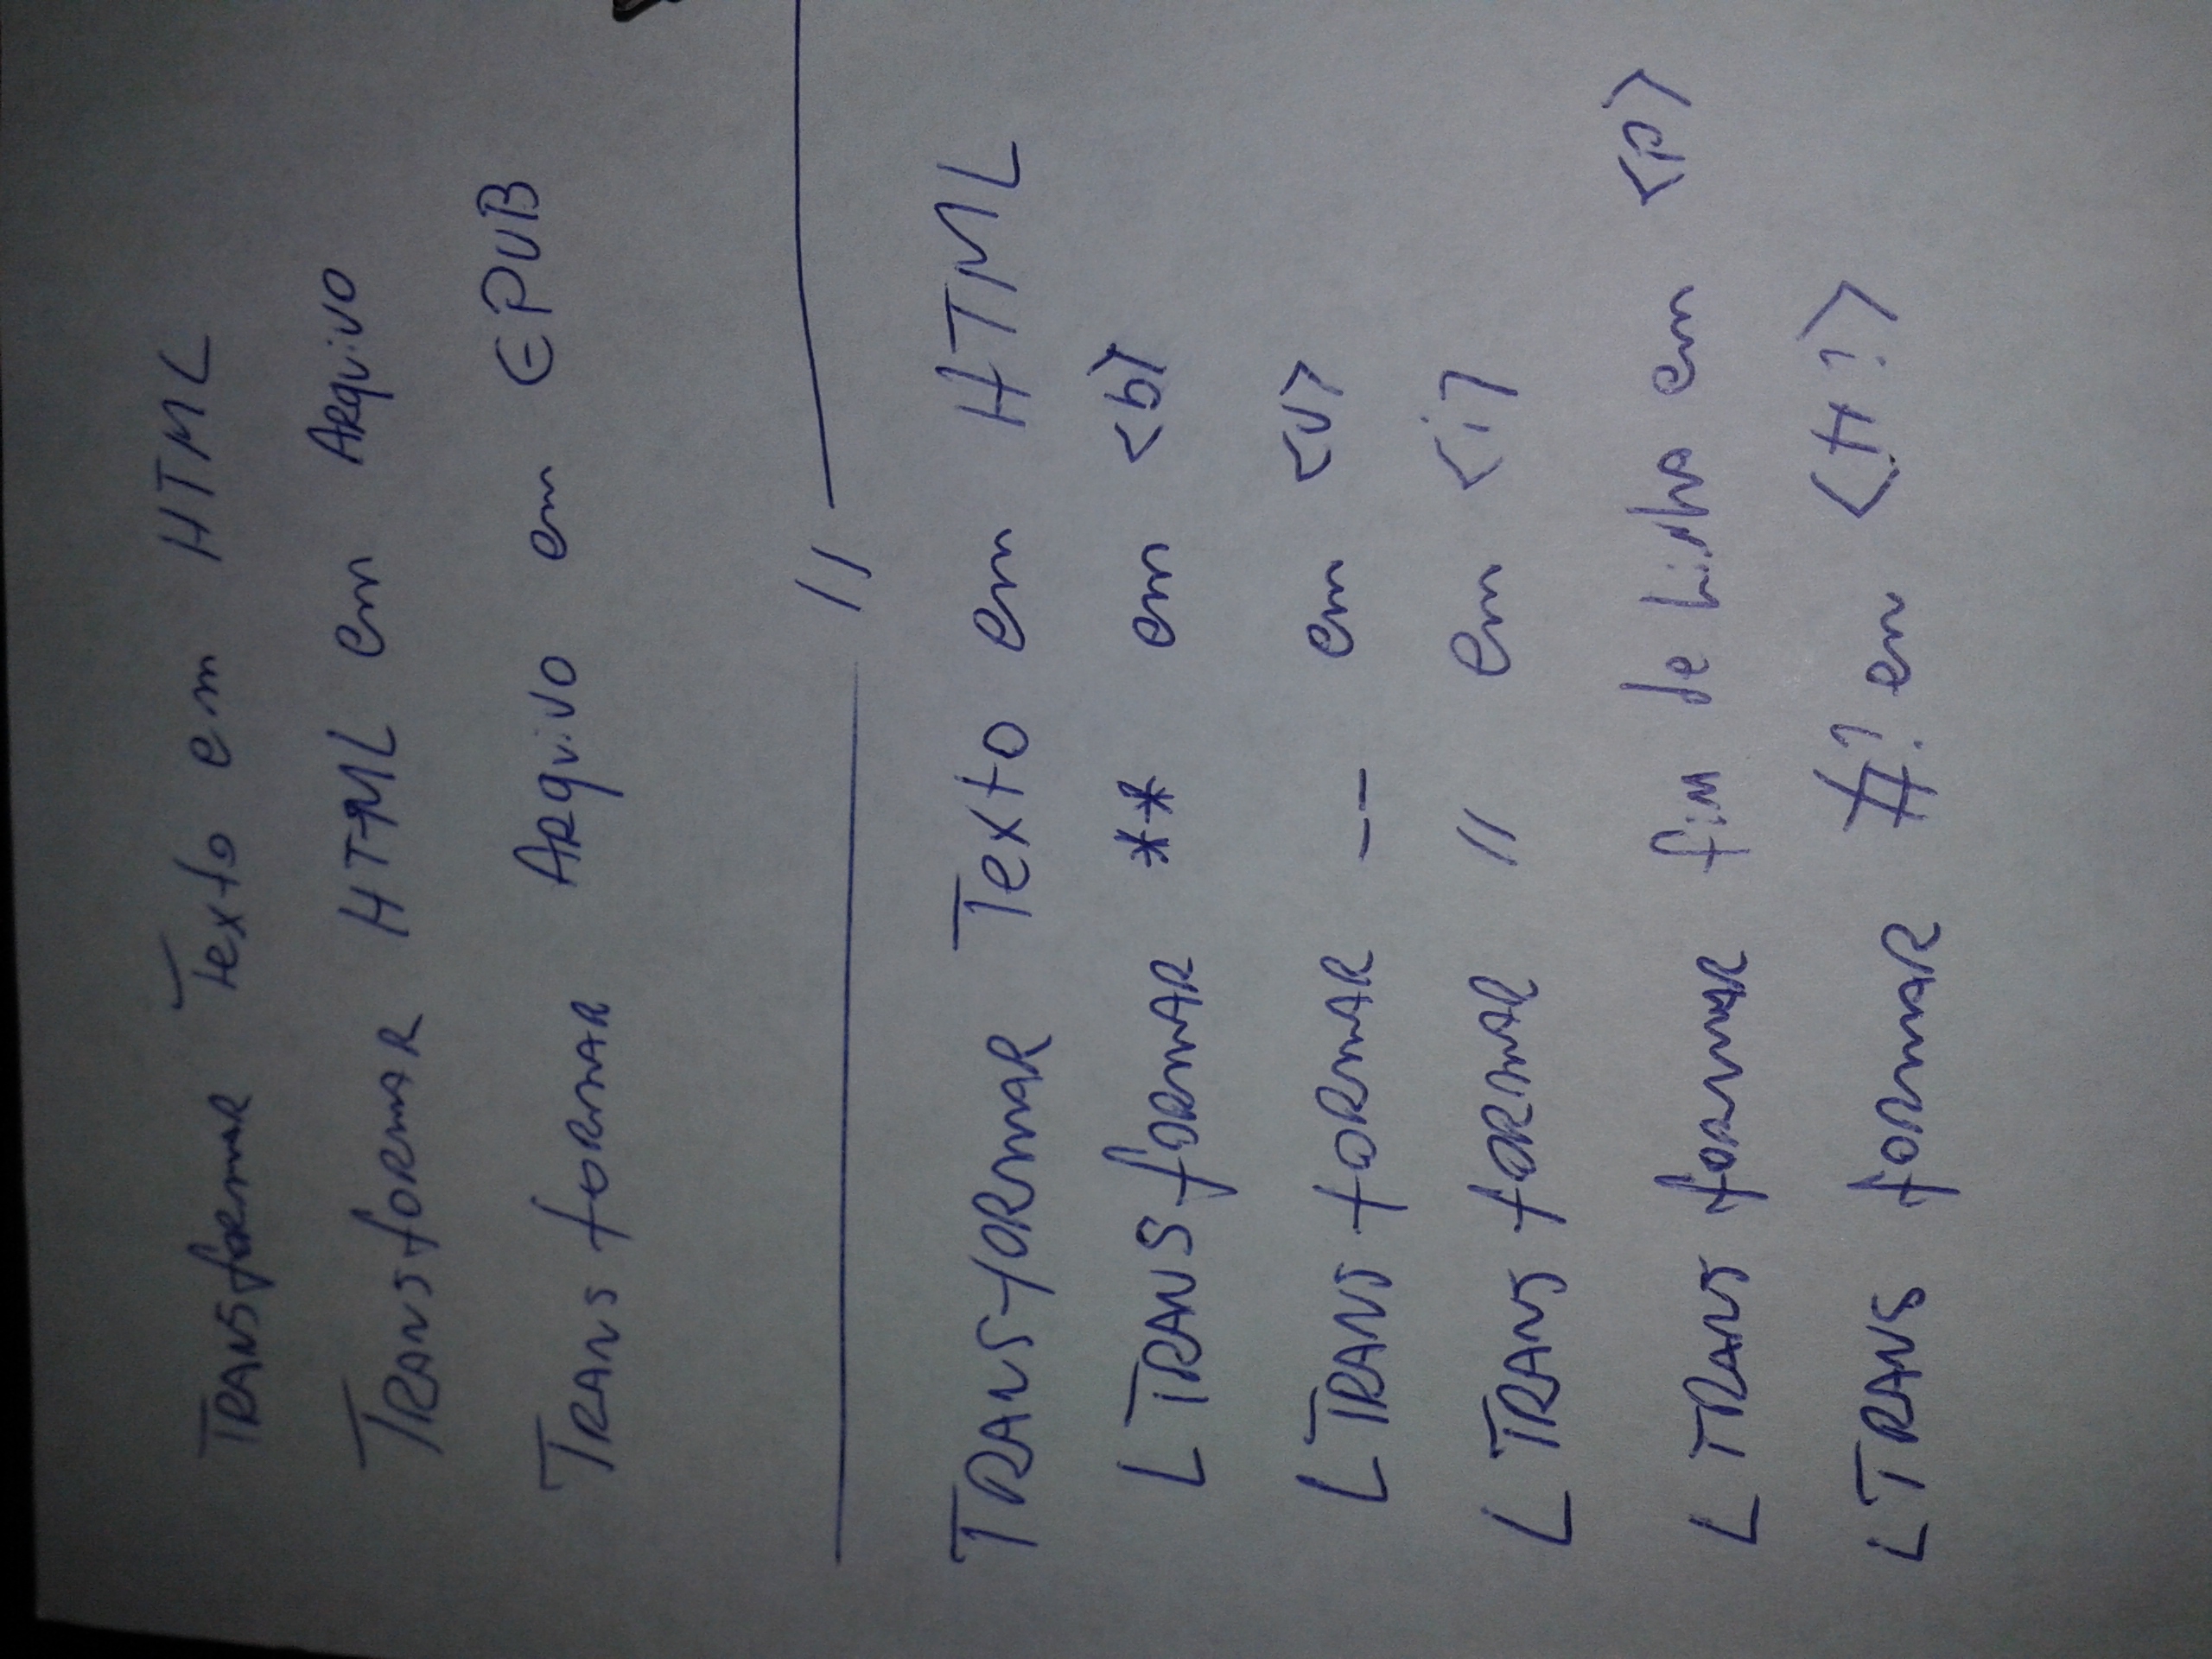 Transformar Texto em HTML
Transformar HTML em Arquivo
Transformar Arquivo em EPUB
//
Transformar Texto em HTML
L Transformar ** em <b>
L Transformar -- em <u>
L Transformar // em <i>
L Transformar fim de linha em <p>
L Transformar #? em <H?>